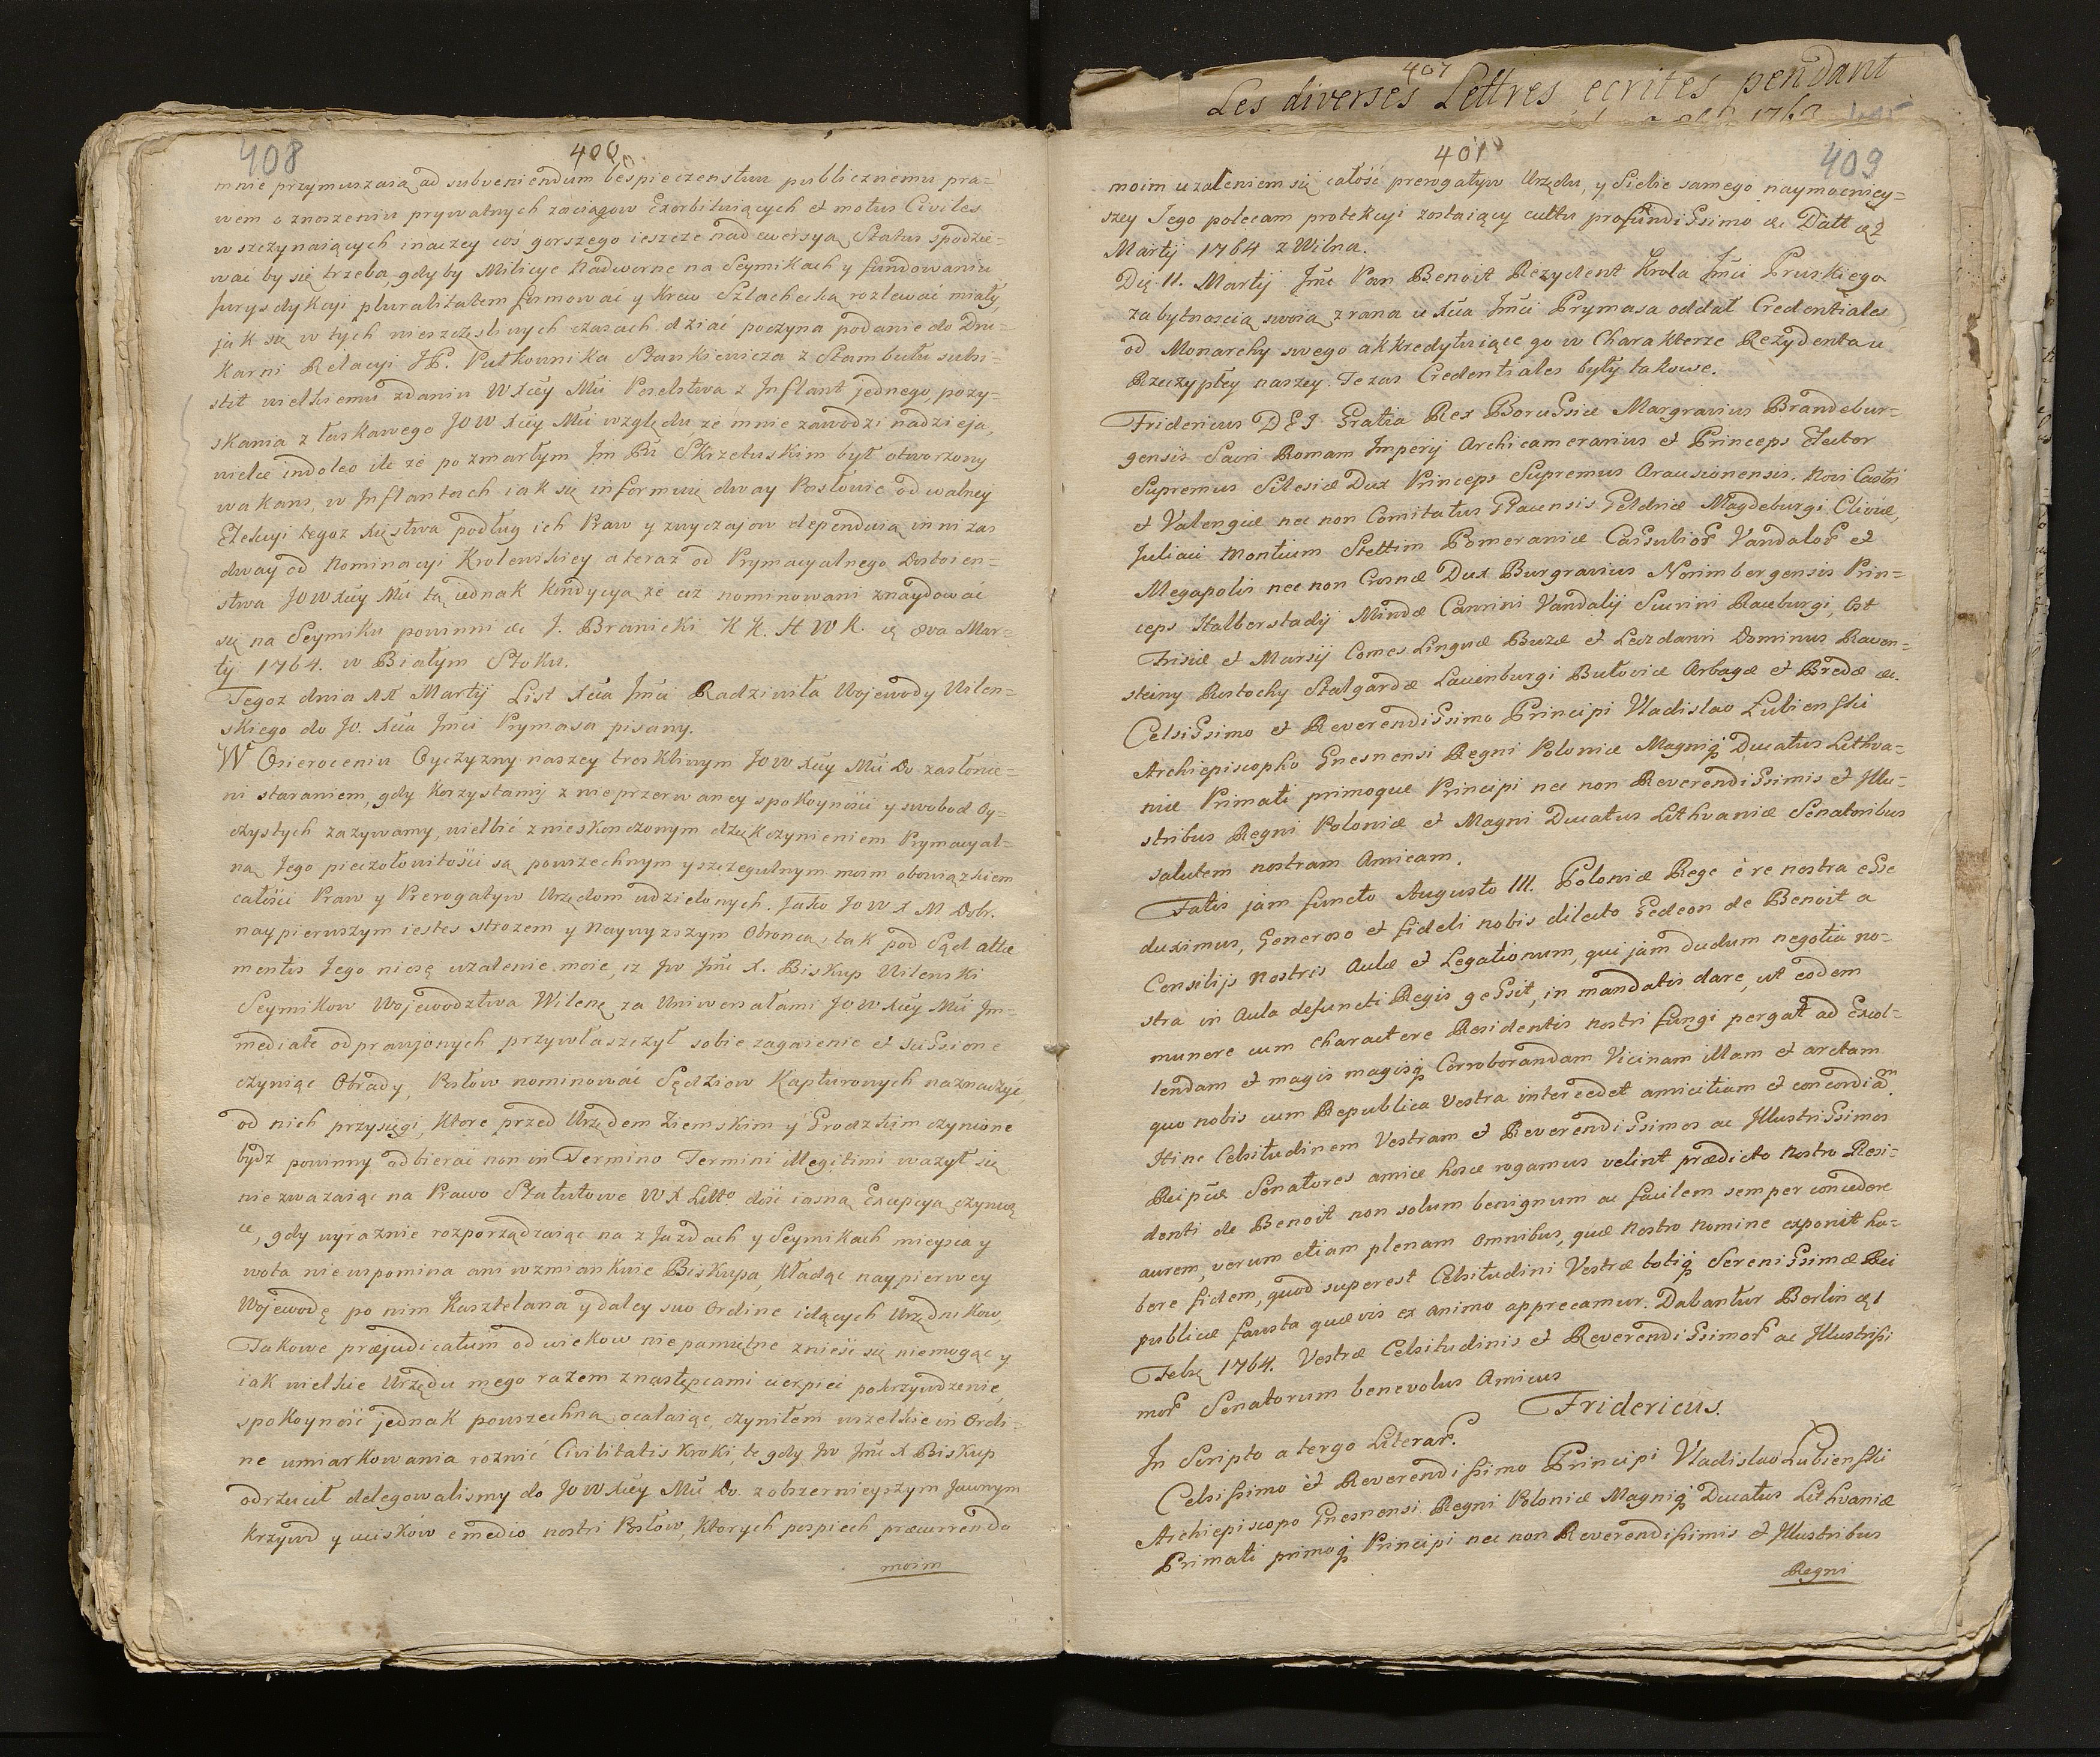 408
400
mnie przymuszaią ad subveniendum bespieczenstwu publicznemu pra=
wem o znoszeniu prywatnych zaciągow Exorbituiących et motus Civiles
wszczynaiących inaczey coś gorszego ieszcze nad ewersyą Status spodzie=
wać by się trzeba, gdyby Milicye Nadworne na Seymikach y fundowaniu
Jurysdykcyi pluralitatem formować y Krew Szlachecką rozlewać miały,
jak się w tych nieszczęsliwych czasach dziać poczyna podanie do Dru=
karni Relacyi JP. Pułkownika Stankiewicza z Stambułu subsi=
stit wielkiemu zdaniu WXcey Mci Poselstwa z Inflant jednego pozy=
skania z łaskawego JOWXcey Mci względu że mnie zawodzi nadzieja,
wielce indoleo ile że po zmarłym Im Pu Skrzetuskim był otworzony
wakans, w Inflantach iak się informuię dway Posłowie od walney
Elekcyi tegoz xięstwa podług ich Praw y zwyczajow dependuią inni zas
dway od Nominacyi Krolewskiey a teraz od Prymacyalnego Dostoien=
stwa JOWXcey Mci tą iednak Kondycyą że ciż nominowani znaydować
się na Seymiku powinni &c J. Branicki K K. H W K. d. 8va Mar=
tij 1764. w Białym Stoku.
Tegoz dnia 11 Martij List Xcia Jmci Radziwiła Wojewody Wilen=
skiego do Jo. Xcia Jmci Prymasa pisany.
W Osieroceniu Oyczyzny naszey troskliwym JOWXcey Mci Do zasłonie=
ni staraniem, gdy Korzystamy z nieprzerwaney spokoynosci y swobod Oy=
czystych zazywamy, wielbić z nieskonczonym dziękczynieniem Prymacyal=
ną Jego pieczołowitości są powszechnym y szczegulnym moim obowiązkiem
całości Praw y Prerogatyw Urzędom udzielonych. Jako JOWXM Dobr.
naypierwszym iestes strozem y Naywyzszym Obroncą, tak pod Sąd altæ
mentis Jego niosę uzalenie moie, iz Jw Jmć X. Biskup Wilenski
Seymikow Wojewodztwa Wilenę za Uniwersałami JOWXcey Mci Im=
mediate odprawjonych przywłaszczył sobie zagaienie et scissione
czyniąc Obrady, Posłow nominować Sędziow Kapturowych naznaczyć,
od nich przysięgi, ktore przed Urzędem Ziemskim y Grodzkim czynione
bydz powinny odbierać non in Termino Termini illegitimi wazył się
nie zwazaiąc na Prawo Statutowe WXLitto dość iasną Excepcyą czynią
ce, gdy wyraznie rozporządzaiąc na zJazdach y Seymikach mieysca y
wota nie wspomina ani wzmiankuie Biskupa, Kładąc naypierwey
Wojewodę po nim Kasztelana y daley suo Ordine idących Urzędnikow,
Takowe præjudicatum od wiekow niepamiętne zniesć się niemogąc y
iak wielkie Urzędu mego razem z następcami cierpieć pokrzywdzenie,
spokoyność jednak powszechną ocalaiąc, czyniłem wszelkie in Ordi=
ne umiarkowania rożnić Civilitatis kroki, te gdy Jw Jmć X Biskup
odrzucił delegowalismy do JOWXcey Mci Do. z obszernieyszym Jawnym
krzywd y uciskow e medio nostri Posłow, ktorych pospiech præcurrendo
moim
407
Les diverses Lettres ecrites pendant
1763
401
409
moim uzaleniem się całość prerogatyw Urzędu, y Siebie samego naymocniey=
szey Jego polecam protekcyi zostaiący cultu profundissimo &c Datt d. 2
Martij 1764 z Wilna.
Die 11. Martij Jmć Pan Benoit Rezydent Krola Jmci Pruskiego
za bytnoscią swoią zrana u Xcia Jmci Prymasa oddał Credentiales
od Monarchy swego akkredytuiące go w Charakterze Rezydenta u
Rzeczyptey naszey. Te zas Credentiales były takowe.
Fridericus DEI Gratia Rex Borussiæ Margravius Brandebur=
gensis Sacri Romam Imperij Archicamerarius et Princeps Elector
Supremus Silesiæ Dux Princeps Supremus Arausionensis, Novi Castri
et Valengiæ nec non Comitatus Glacensis Geldriæ Magdeburgi Cliviæ,
Juliaci Montium Stettim Pomeraniæ Cassubior Vandalor et
Megapolis nec non Crosnæ Dux Burgravius Norimbergensis Prin=
ceps Halberstadij Mindæ Camini Vandalij Suerini Raceburgi, Ost
Frisiæ et Marsij Comes Lingviæ Buræ et Leerdami Dominus Raven=
steiny Rostochy Stalgardæ Lauenburgi Butoviæ Arbagæ et Bredæ &c.
Celsissimo et Reverendissimo Principi Vladislao Łubienski
Archiepiscopho Gnesnensi Regni Poloniæ Magniq Ducatus Lithva=
niæ Primati primoque Principi nec non Reverendissimis et Illu=
stribus Regni Poloniæ et Magni Ducatus Lithvaniæ Senatoribus
salutem nostram Amicam.
Fatis jam functo Augusto III. Poloniæ Rege è re nostra esse
duximus, Generoso et fideli nobis dilecto Gedeon de Benoit a
Consilijs Nostris Aulæ et Legationum, qui jam dudum negotia no=
stra in Aula defuncti Regis gessit, in mandatis dare, ut eodem
munere cum charactere Residentis nostri fungi pergat ad Excol=
lendam et magis magisq Corroborandam Vicinam illam et arctam
quo nobis cum Republica Vestra intercedet amicitiam et concordiam.
Hinc Celsitudinem Vestram et Reverendissimos ac Illustrissimos
Reipcæ Senatores amice hosce rogamus velint prædicto Nostro Resi=
denti de Benoit non solum benignum ac facilem semper concedere
aurem, verum etiam plenam omnibus, quæ nostro nomine exponit ha=
bere fidem, quod superest Celsitudini Vestræ totiq Serenissimæ Rei
publicæ fausta quævis ex animo apprecamur. Dabantur Berlin d. 1
Febr 1764. Vestræ Celsitudinis et Reverendissimor ac Illustrissi
mor Senatorum benevolus Amicus
Fridericus.
In Scripto a tergo Literar.
Celsissimo et Reverendissimo Principi Vladislao Łubienski
Archiepiscopo Gnesnensi Regni Poloniæ Magniq Ducatus Lithvaniæ
Primati primoq Principi nec non Reverendissimis et Illustribus
Regni